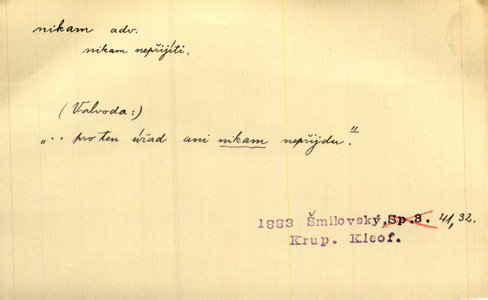 nikam adv.
nikam nepřijíti.
(Valvoda:)
„.. pro ten úřad ani nikam nepřijdu."
1883 Šmilovský, Sp.3. 41, 32.
Krup. Kleof.